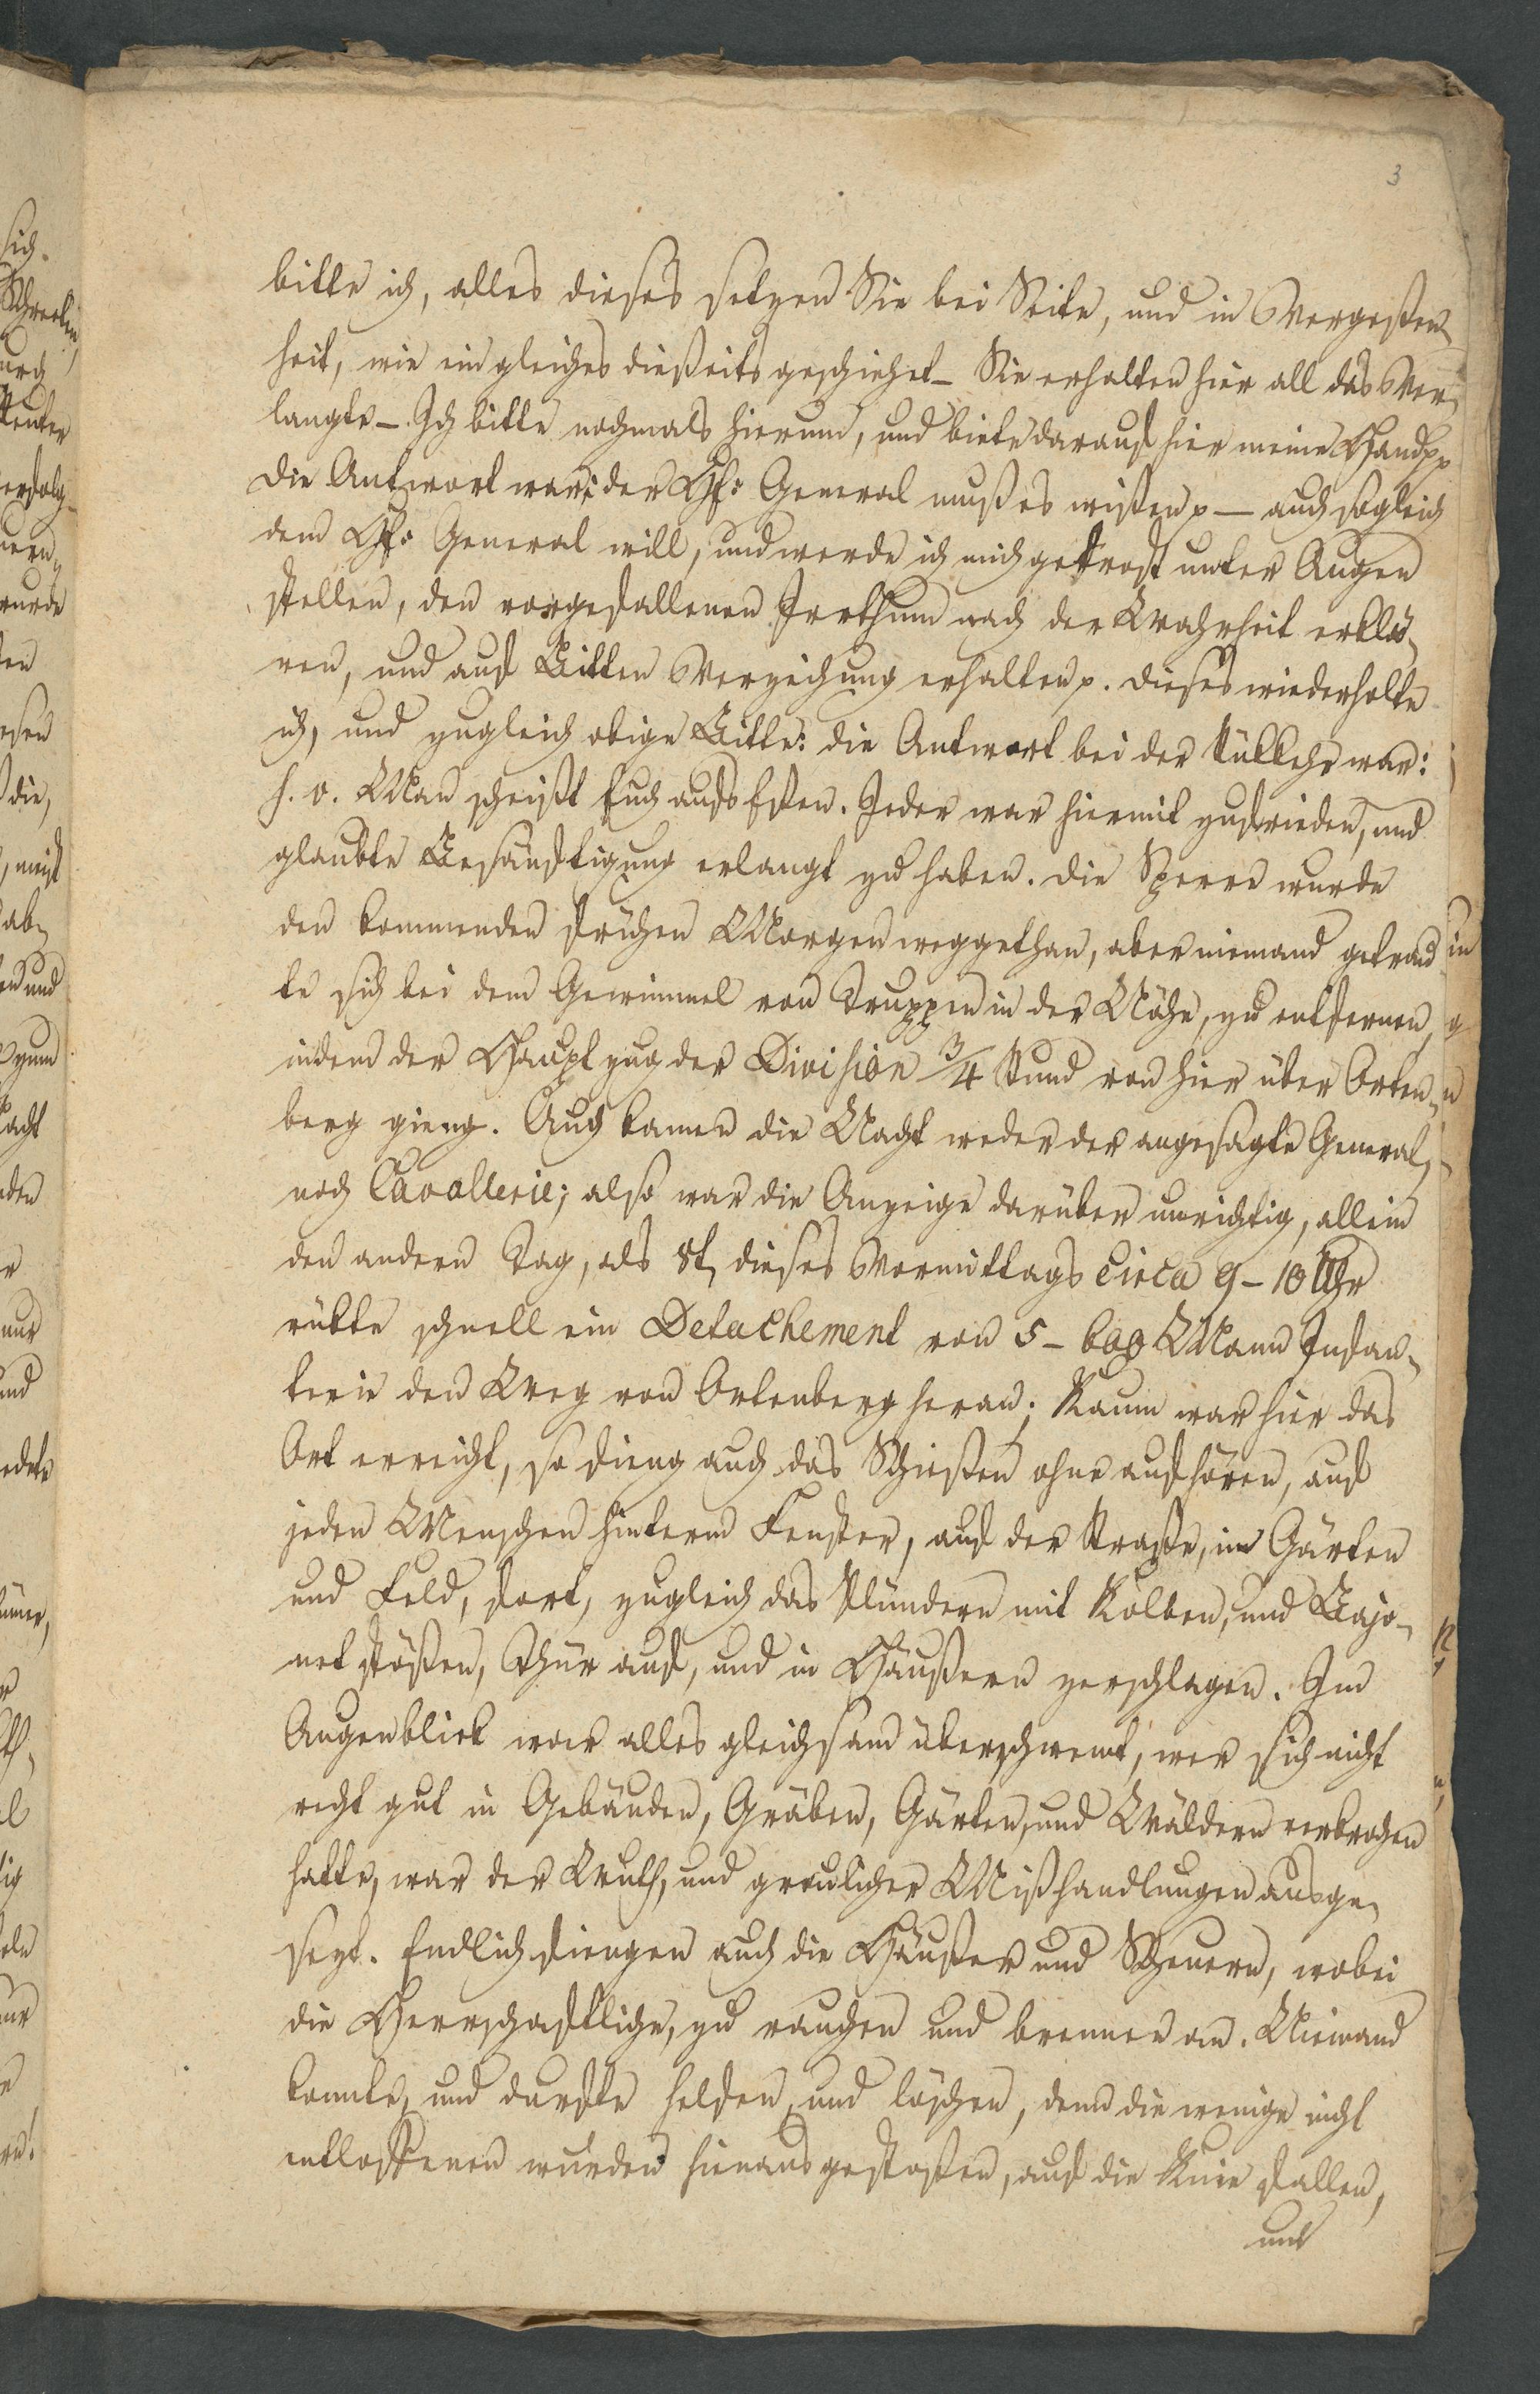 3
bitte ich, alles dieses setzen Sie bei Seite, und in Vergeßen-
heit, wie ein gleiches dießeits geschiehet – Sie erhalten hier all das Ver-
langte –. Ich bitte nochmals hierum, und biete darauf hier meine Hand pp
die Antwort war: der H: General muß es wißen p – auch sogleich
dem H: General will, und werde ich mich getrost unter Augen
stellen, den vorgefallenen Irrthum nach der Wahrheit erklä-
ren, und auf Bitten Verzeihung erhalten p. dieses wiederholte
ich, und zugleich obige Bitte: die Antwort bei der Rükkehr war:
s. v. Man scheißt Euch aufs Eßen. Jeder war hiermit zufrieden, und
glaubte Besänftigung erlangt zu haben. die Sperre wurde
den kommenden frühen Morgen weggethan, aber niemand getrau-
te sich bei dem Gewimmel von Truppen in der Nähe, zu entfernen,
indem der Hauptzug der Division 3/4 Stund von hier über Orten-
berg gieng. Auch kamen die Nacht weder der angesagte General,
noch Cavallerie; also war die Anzeige darüber unrichtig, allein
den andern Tag, als 8t. dieses Vormittags Circa 9–10 Uhr
rükte schnell ein Detachement von 5–600 Mann Infan-
terie den Weg von Ortenberg heran; Kaum war hier das
Ort erreicht, so fieng auch das Schießen ohne aufhören, auf
jeden Menschen hinterm Fenster, auf der Straße, in Gärten
und Feld, fort, zugleich das Plündern mit Kolben, und Bajo-
net stößen, Thür auf, und in Häußern zerschlagen. Im
Augenblick war alles gleichsam überschwemt, wer sich nicht
recht gut in Gebäuden, Gräben, Gärten, und Wäldern verkrochen
hatte, war der Wuth, und greulicher Mißhandlungen ausge-
sezt. Endlich fiengen auch die Häußer und Scheuern, wobei
die Herrschaftliche, zu rauchen und brennen an. Niemand
konnte, und durfte helfen, und löschen, denn die wenige nicht
entloffenen wurden hinausgestoßen, auf die Knie fallen,
und